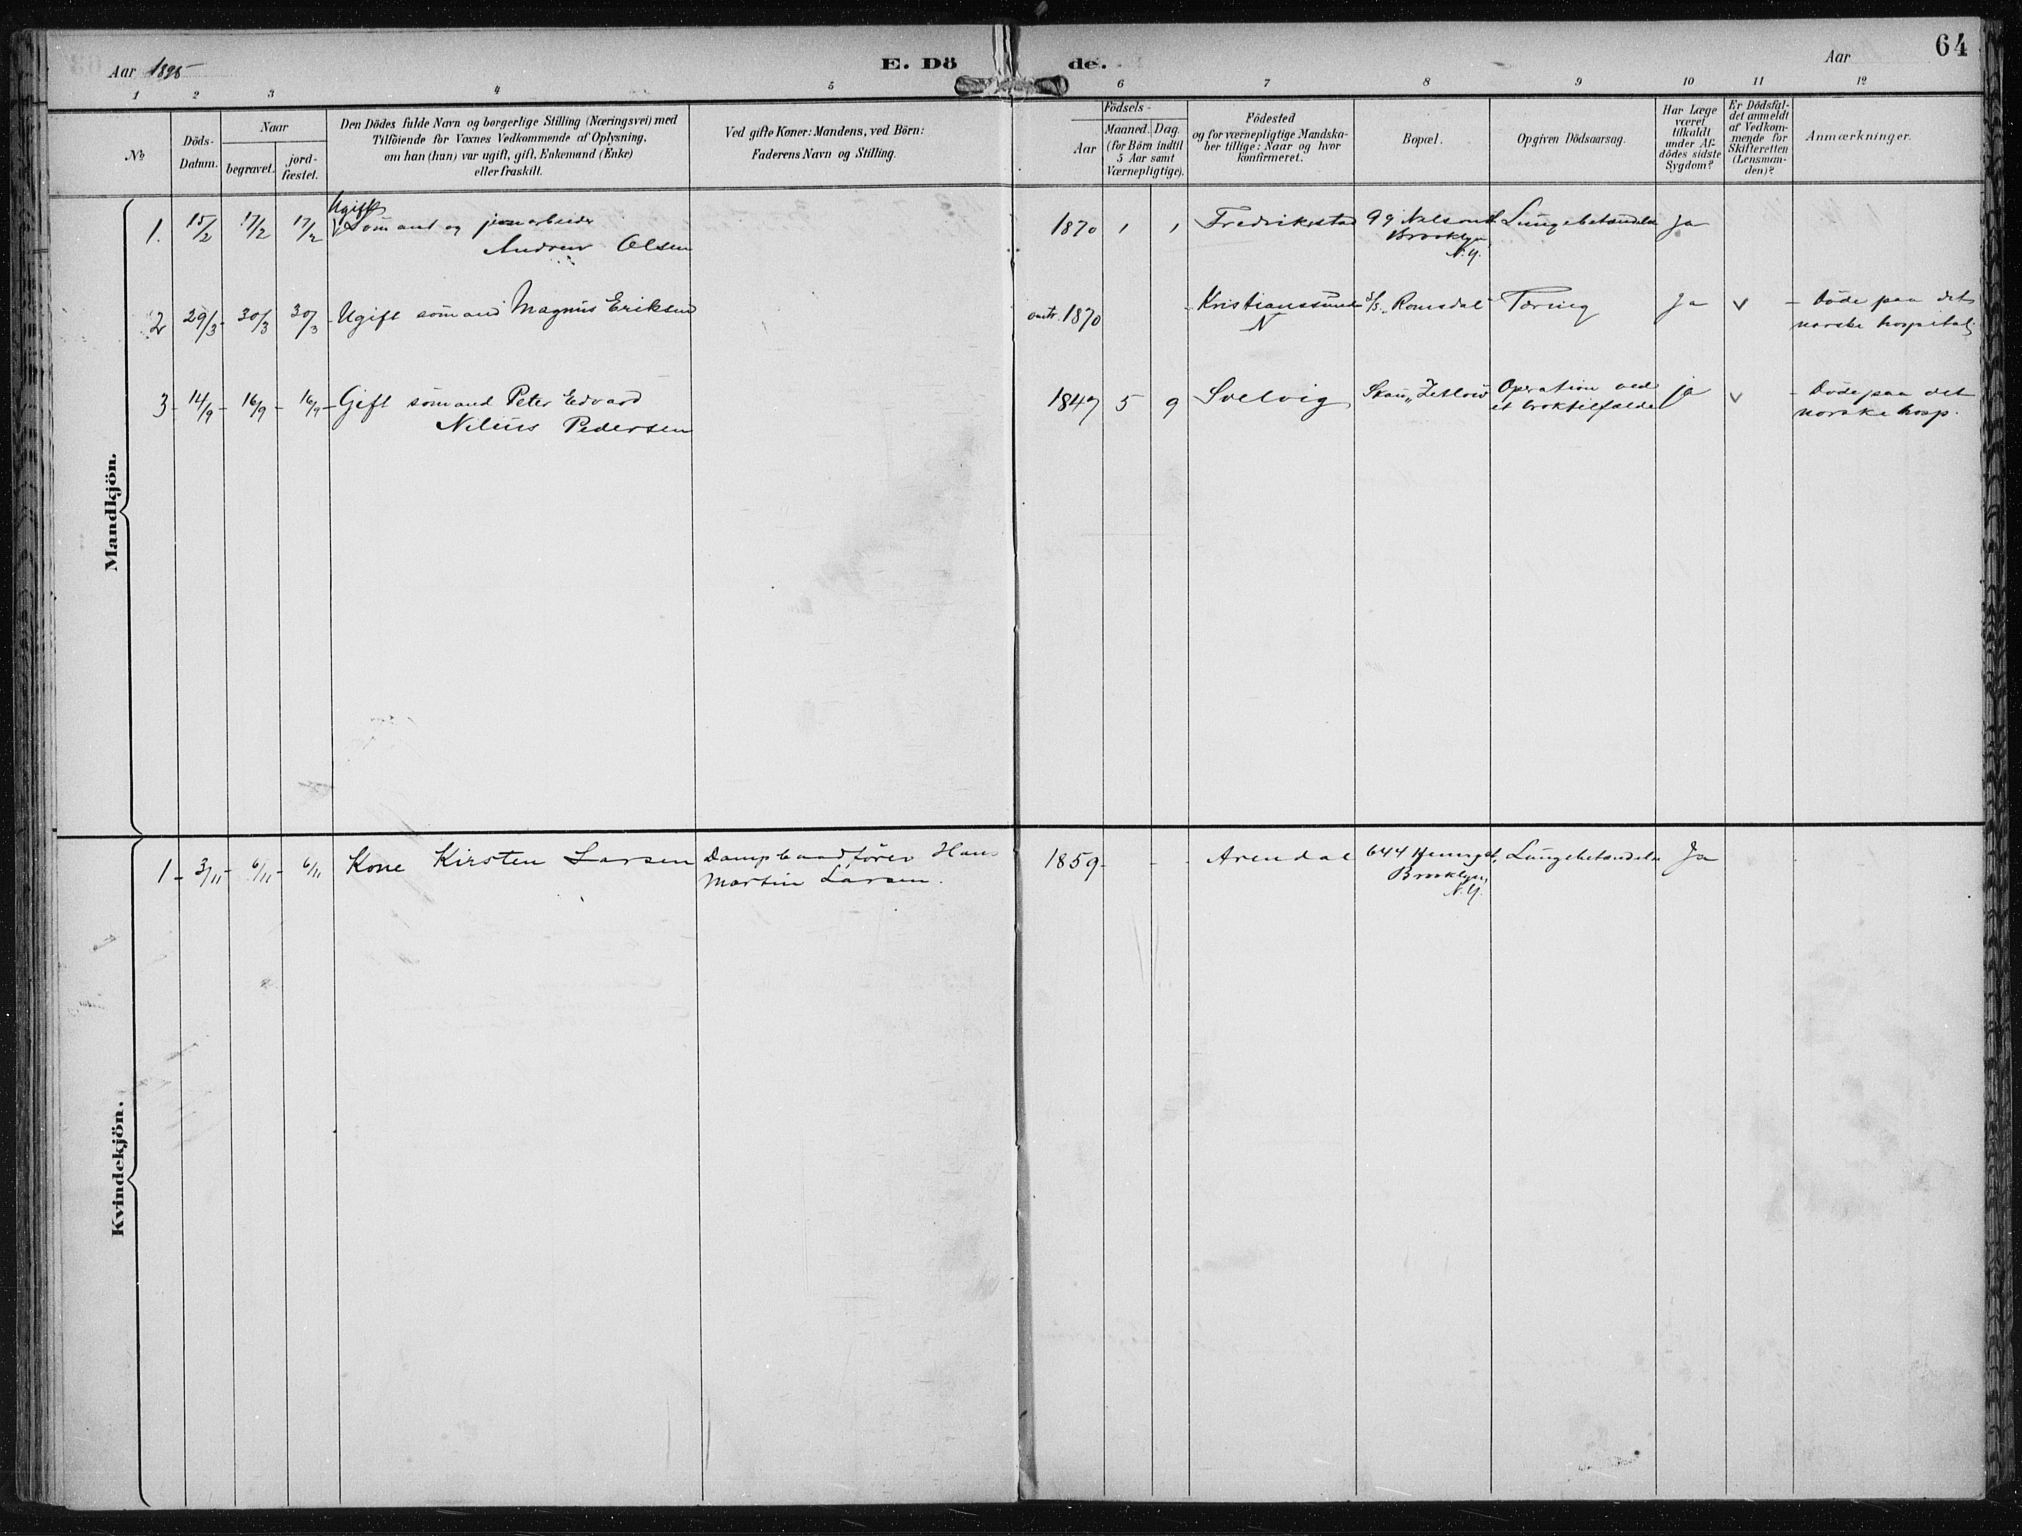 64
Aar 1895 E. Dö de. Aar
1 2 3 4 5 6 7 8 9 10 11 12
No
Döds-
Datum.
Naar
begravet.
jord-
fæstet.
Den Dödes fulde Navn og borgerlige Stilling (Næringsvei) med
Tilföiende for Voxnes Vedkommende af Oplysning,
om han (hun) var ugift, gift, Enkemand (Enke)
eller fraskilt.
Ved gifte Koner: Mandens, ved Börn:
Faderens Navn og Stilling.
Födsels-
Aar
Maaned. Dag.
(for Börn indtil
5 Aar samt
Værnepligtige).
Födested
og for værnepligtige Mandska-
ber tillige: Naar og hvor
konfirmeret.
Bopæl.
Opgiven Dödsaarsag.
Har Læge
været
tilkaldt
under Af-
dödes sidste
Sygdom?
Er Dödsfal-
det anmeldt
af Vedkom-
mende for
Skifteretten
(Lensman-
den)?
Anmærkninger.
Mandkjön.
Ugift
1. 15/2 17/2 17/2 Sömand og jernarbeider 1870 1 1 Fredrikstad 99 Nelson st. Lungebetændelse Ja
Andrew Olsen Brooklyn
N.Y.
2 29/3 30/3 30/3 Ugift sömand Magnus Eriksen omtr. 1870 Kristianssund S/S „Romsdal" Tæring Ja v - Döde paa det
N norske hospital
3 - 14/9 - 16/9 - 16/9 - Gift sömand Peter Edvard 1847 5 9 Svelvig Skon. „Zetlow" Operation ved ja v - Döde paa det
Nilius Pedersen et broktilfælde norske hosp.
Kvindekjön.
1 - 3/11 - 6/11 - 6/11 Kone Kirsten Larsen Dampbaadförer Hans 1859 - - - Arendal 644 Henry st. Lungebetændelse Ja
Martin Larsen. Brooklyn,
N.Y.